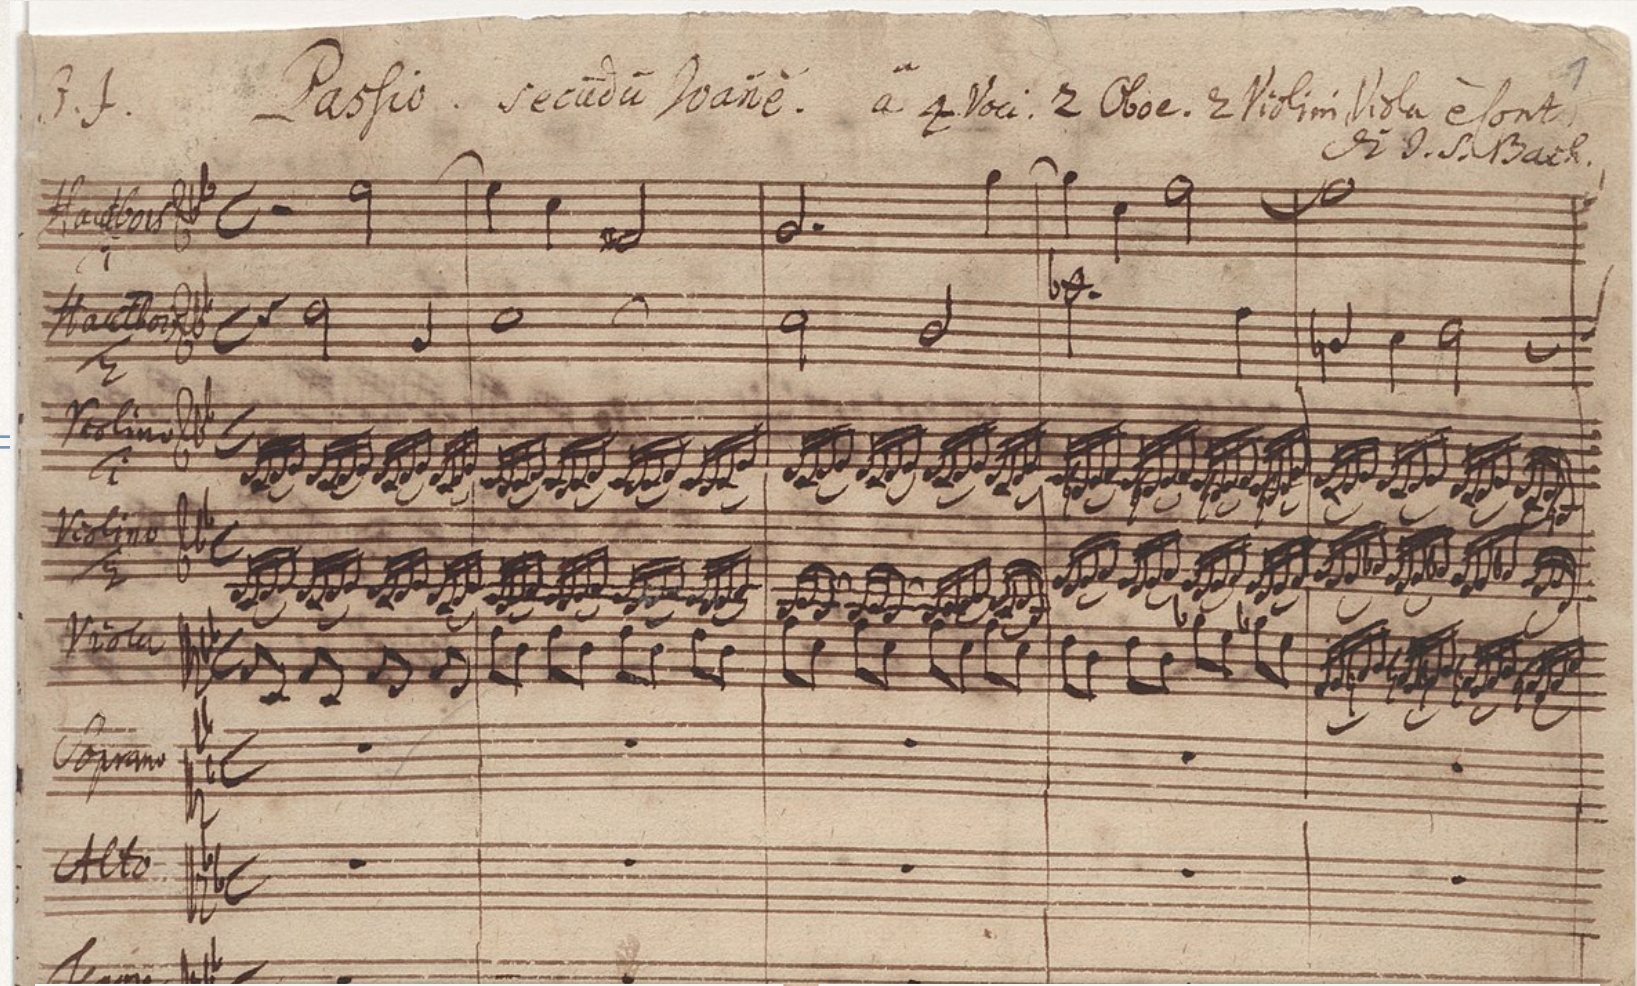 J. J. Passio secūdū Joañē. â 4 Voci. 2 Oboe. 2 Violini, Viola è Cont.
di J. S. Bach.
Hautbois
1
Hautbois
2
Violino
1
Violino
2
Viola
Soprano
Alto